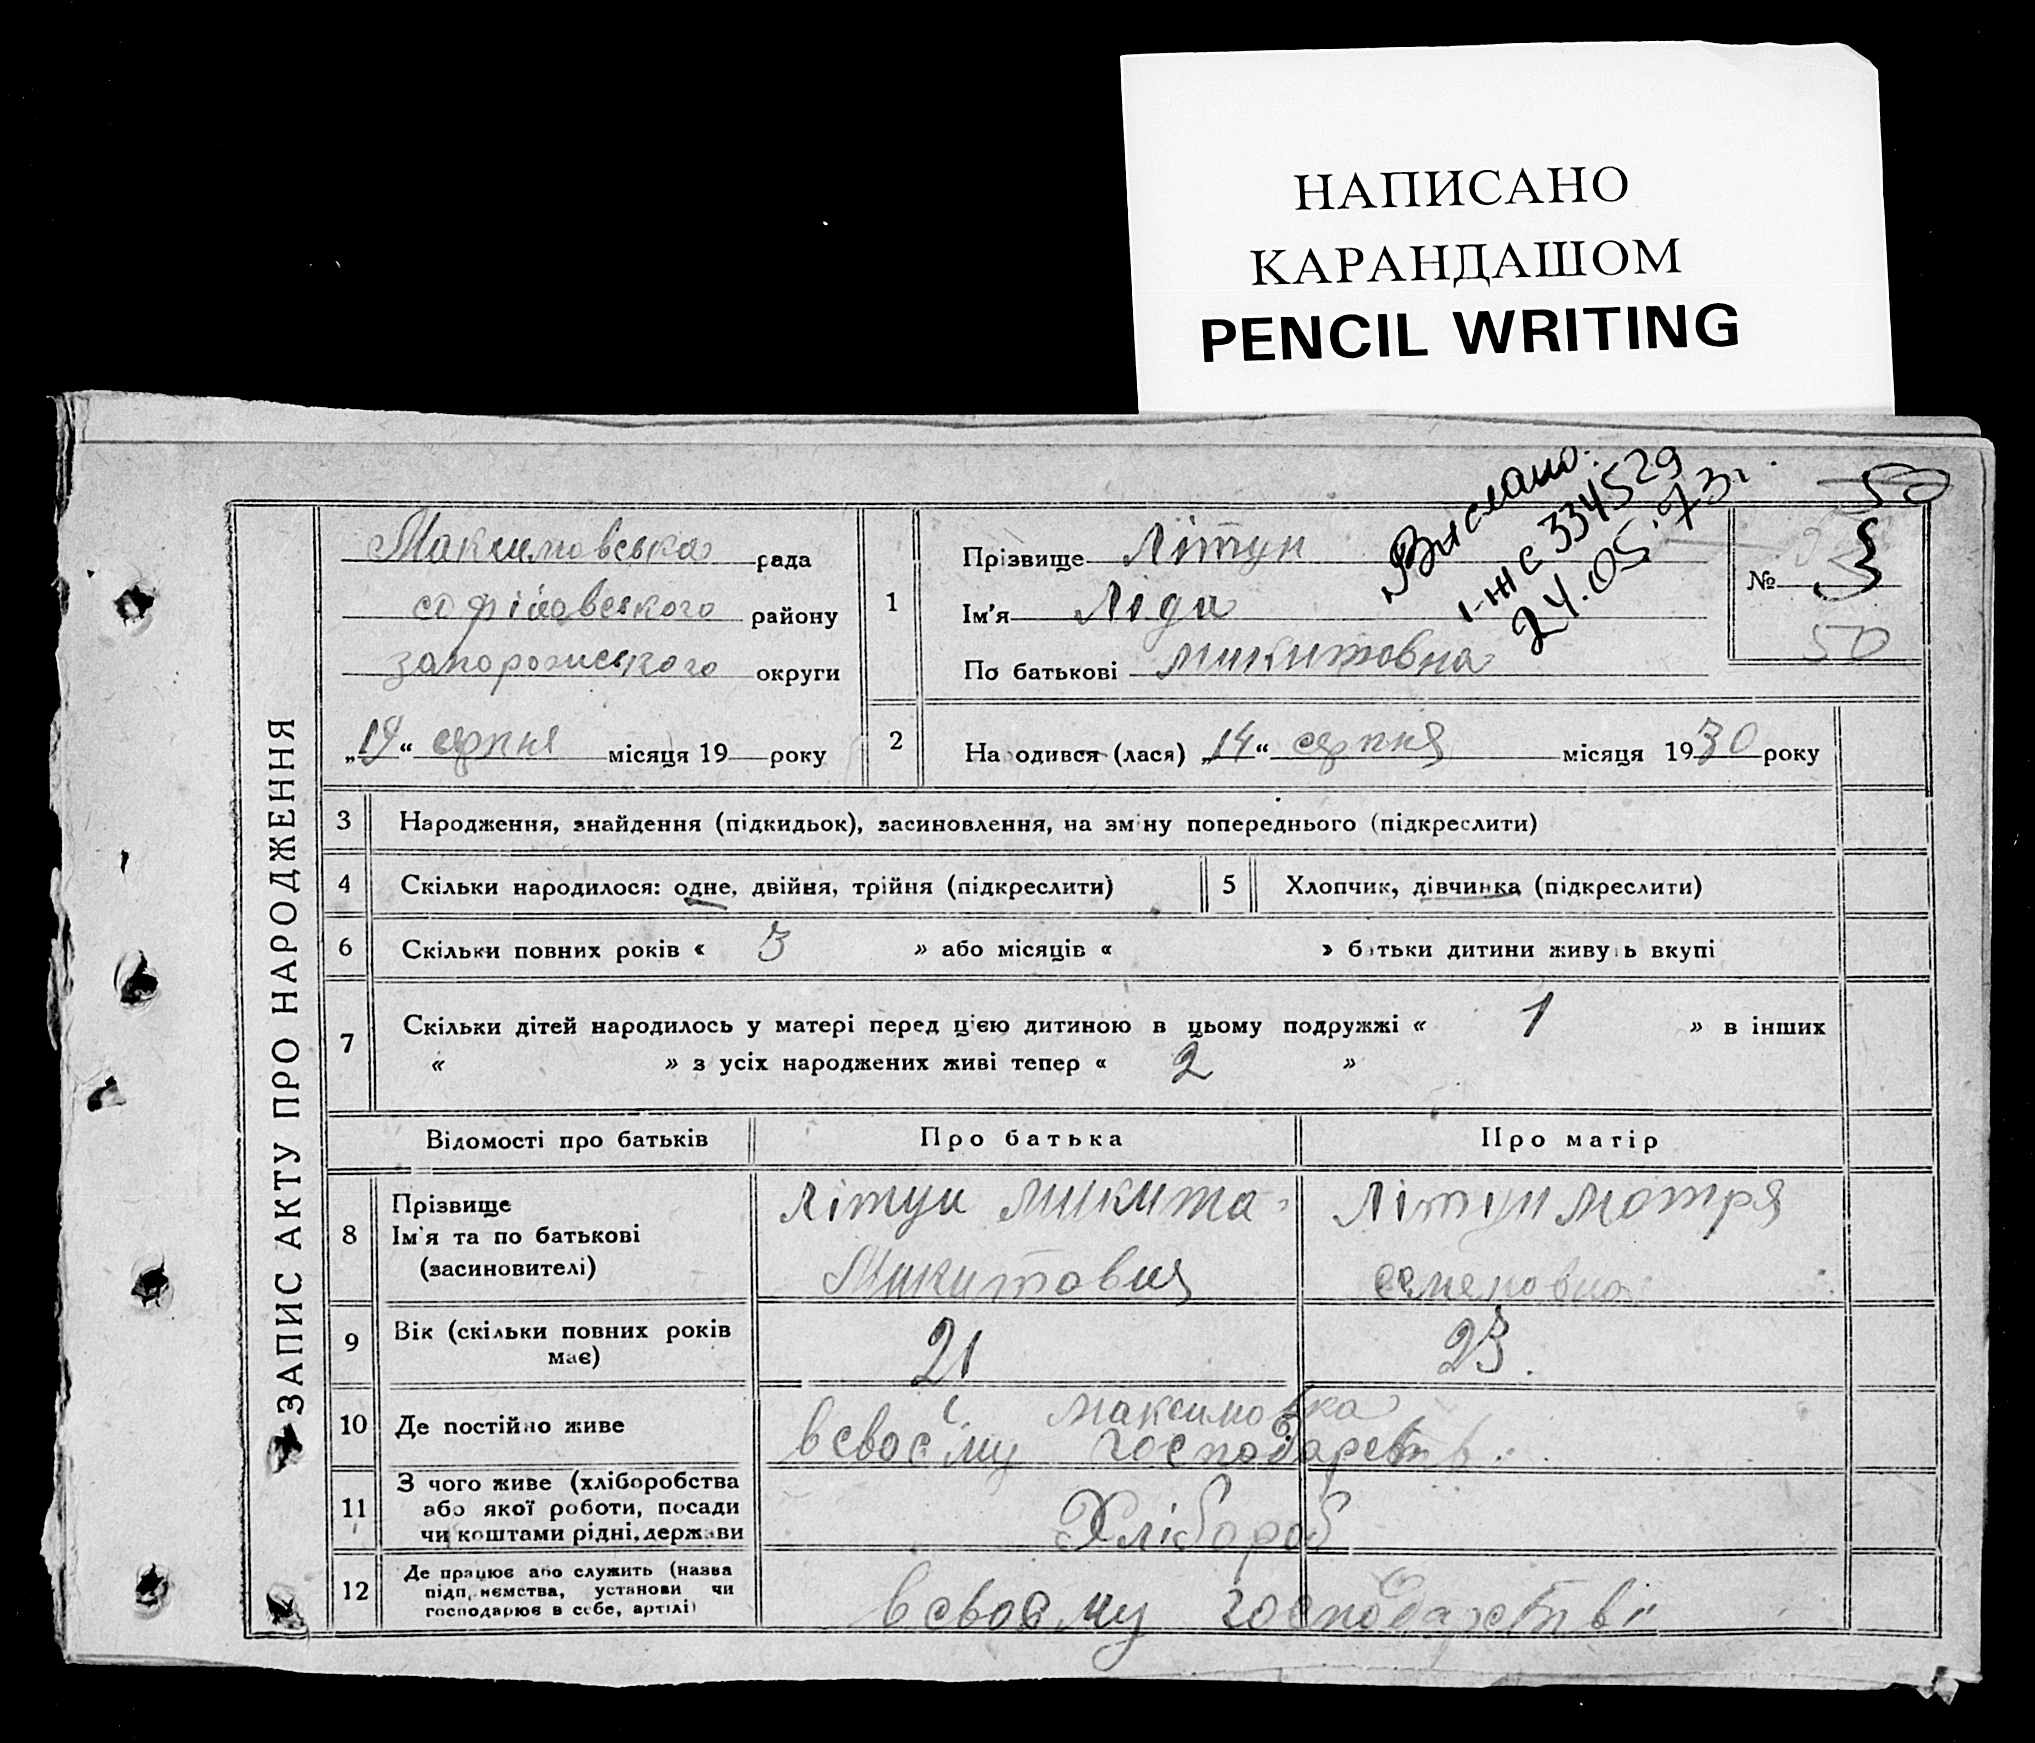 НАПИСАНО
КАРАНДАШОМ
PENCIL WRITING
Вислано.
І-ЖС 334529
24.05.73г.
50
ЗАПИС АКТУ ПРО НАРОДЖЕННЯ
Максимовська рада
софіівського району
запорожського округи
„19“ серпня місяця 19 року
1
Прізвище Літун
Ім'я Ліда
По батькові микитовна
№ 3
50
2
Народився (лася) „14“ серпня місяця 1930 року
3 Народження, знайдення (підкидьок), засиновлення, на зміну попереднього (підкреслити)
4 Скільки народилося: одне, двійня, трійня (підкреслити)
5 Хлопчик, дівчинка (підкреслити)
6 Скільки повних років « 3 » або місяців « » батьки дитини живуть вкупі
7 Скільки дітей народилось у матері перед цією дитиною в цьому подружжі « 1 » в інших
« » з усіх народжених живі тепер « 2 »
Відомості про батьків Про батька Про матір
8 Прізвище
Ім'я та по батькові
(засиновителі)
Літун микита
Микитович
Літун мотря
семеновна
9 Вік (скільки повних років
має)
21
23.
10 Де постійно живе
с. Максимовка
в своєму господарстві
11 З чого живе (хліборобства
або якої роботи, посади
чи коштами рідні, держави
Хлібороб
12 Де працює або служить (назва
підприємства, установи чи
господарює в себе, артілі)
в своєму господарстві